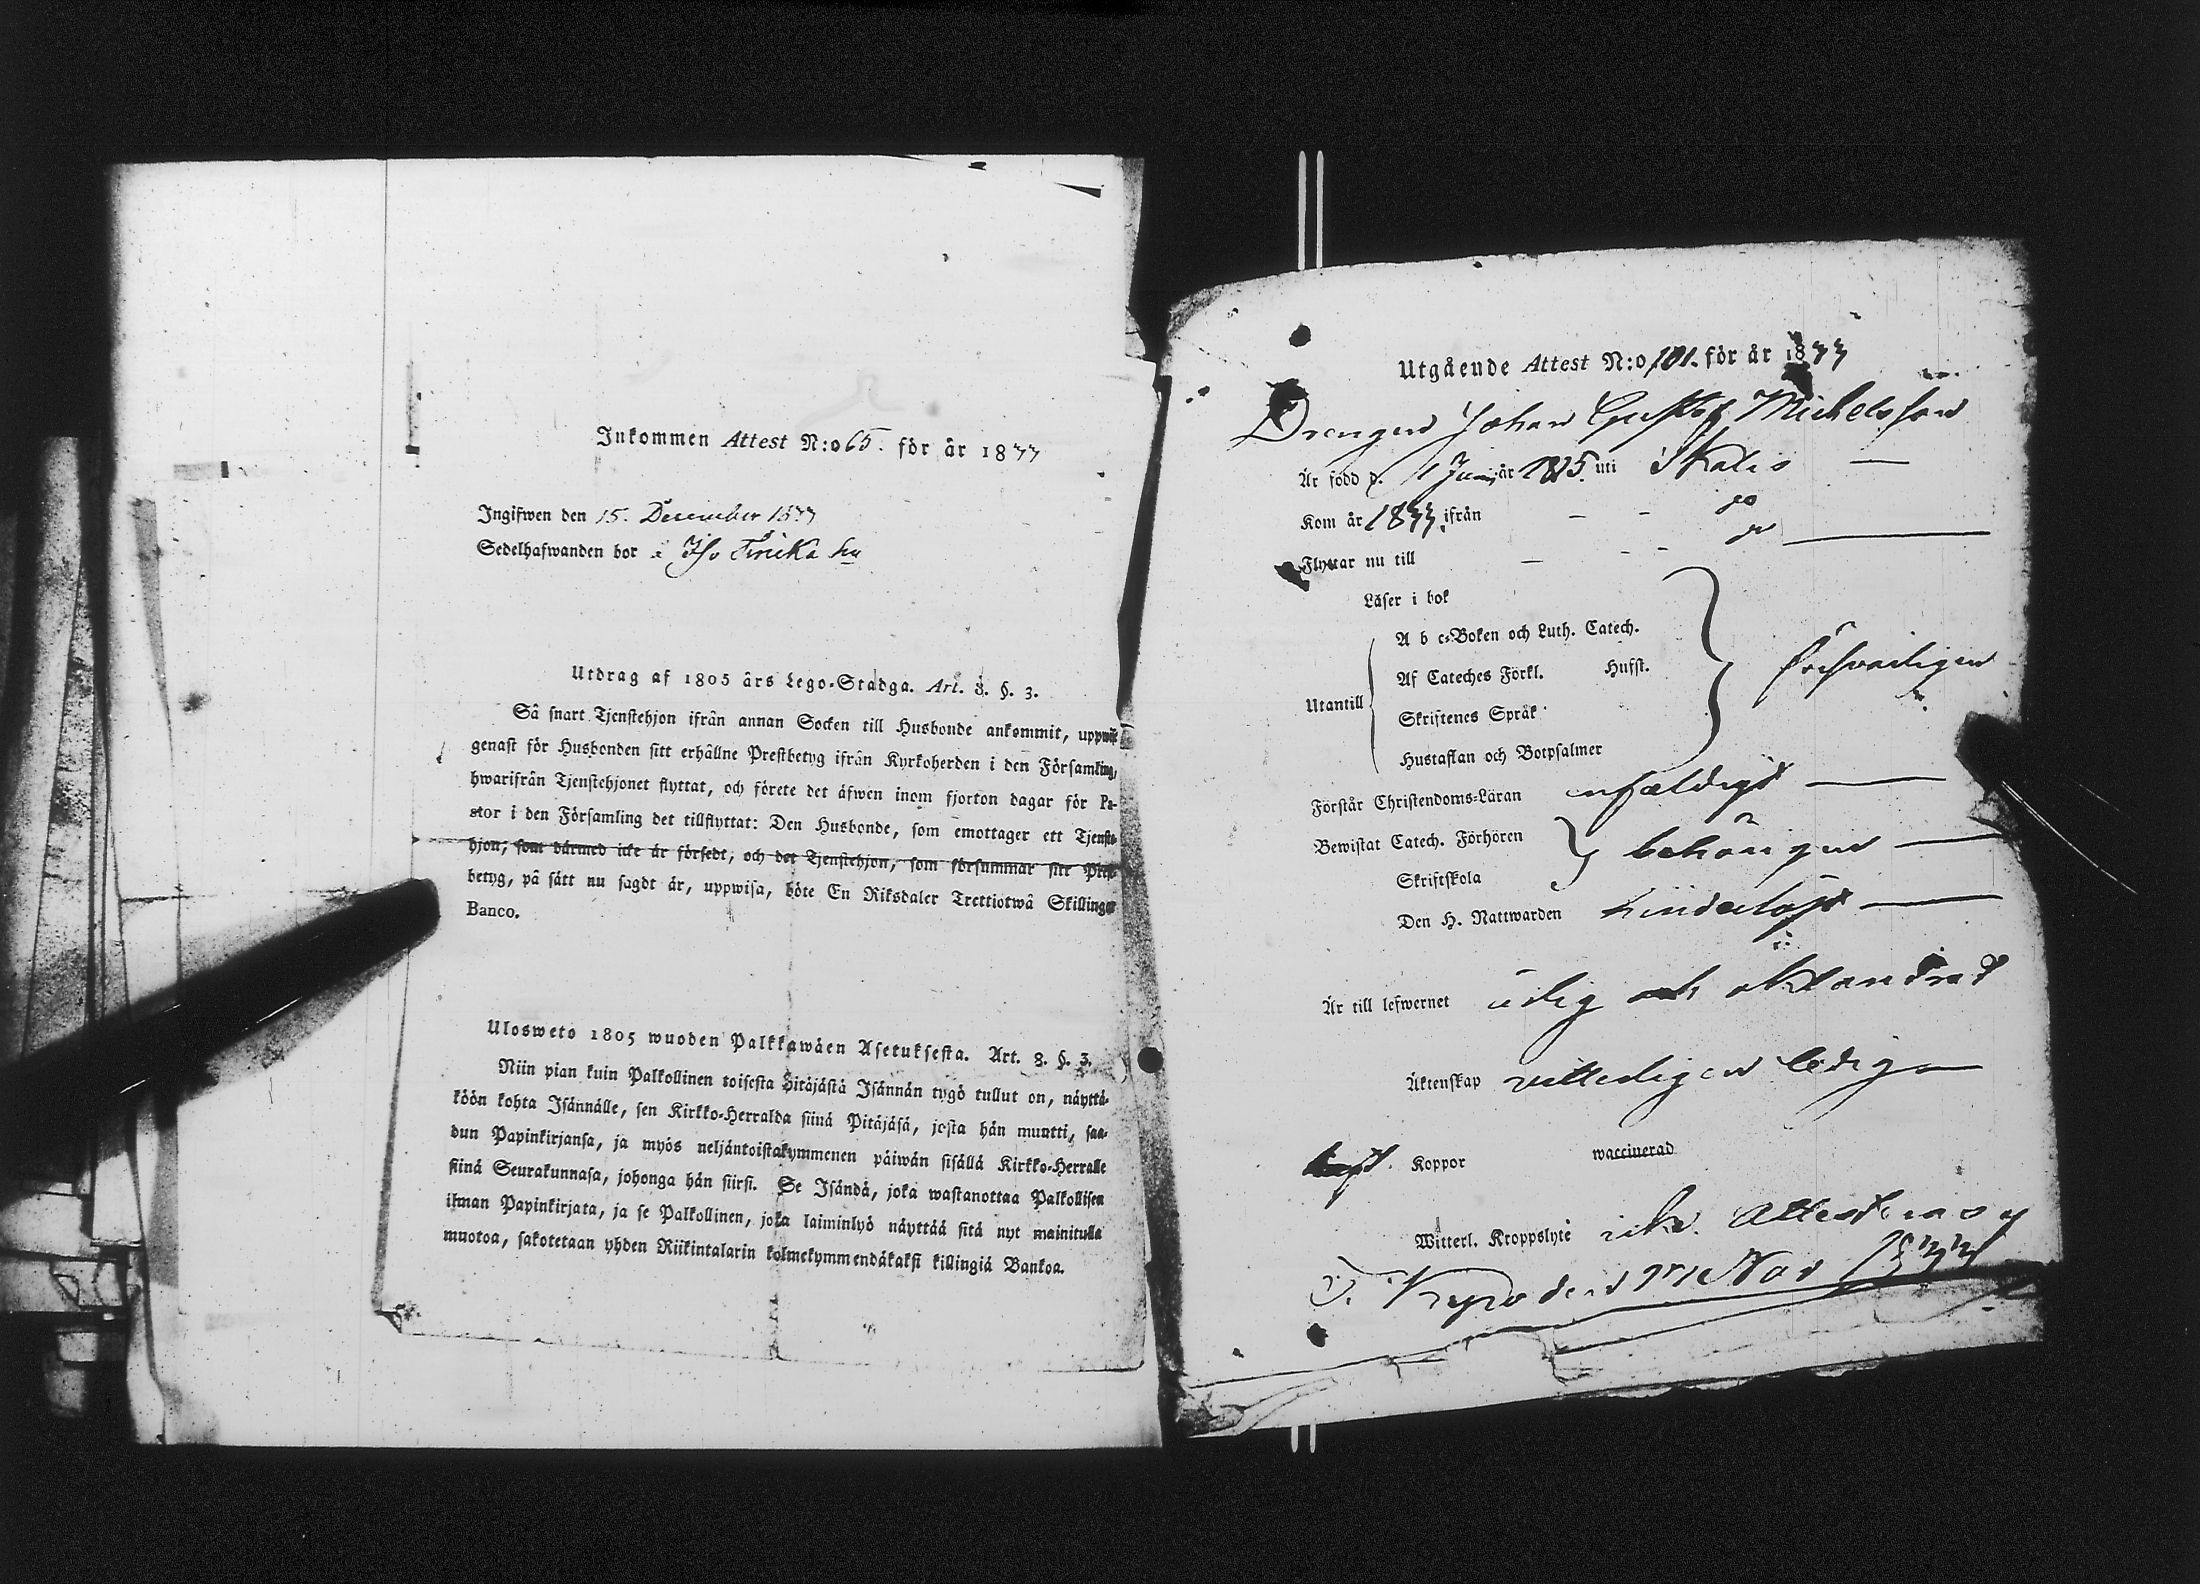 Inkommen Attest N:o 65. för år 1833
Ingifwen den 15. December 1833
Sedelhafwanden bor i Iso
Utdrag af 1805 års Lego-Stadga. Art. 8. §. 3.
Så snart Tjenstehjon ifrån annan Socken till Husbonde ankommit, uppwise
genast för Husbonden sitt erhållne Prestbetyg ifrån Kyrkoherden i den Församling,
hwarifrån Tjenstehjonet flyttat, och förete det äfwen inom fjorton dagar för Pa-
stor i den Församling det tillflyttat: Den Husbonde, som emottager ett Tjenste-
hjon, som därmed icke är försedt, och det Tjenstehjon, som försummar sitt Prest-
betyg, på sätt nu sagdt är, uppwisa, böte En Riksdaler Trettiotwå Skillingar
Banco.
Ulosweto 1805 wuoden Palkkawäen Asetuksesta. Art. 8. §. 3.
Niin pian kuin Palkollinen toisesta Pitäjästä Isännän tygö tullut on, näyttä-
köön kohta Isännälle, sen Kirkko-Herralda siinä Pitäjäsä, josta hän muutti, saa-
dun Papinkirjansa, ja myös neljäntoistakymmenen päiwän sisällä Kirkko-Herralle
siinä Seurakunnasa, johonga hän siirsi. Se Isändä, joka wastanottaa Palkollisen
ilman Papinkirjata, ja se Palkollinen, joka laiminlyö näyttää sitä nyt mainitulla
muotoa, sakotetaan yhden Riikintalarin kolmekymmendäkaksi killingiä Bankoa.
Utgående Attest N:o 101. för år 1833
Drengen Johan Gustaf Michelsson
Är född d. 1 Junii år uti Ikalis
Kom år 1833 ifrån
Flyttar nu till
Läser i bok
A b c-Boken och Luth. Catech.
Utantill Af Cateches Förkl. Husft. försvarligen
Skriftenes Språk
Hustaflan och Botpsalmer
Förstår Christendoms-Läran enfaldigt
Bewistat Catech. Förhören behörigen
Skriftskola
Den H. Nattwarden hinderlöst
Är till lefwernet ärlig och oklandrad
Äktenskap witterligen ledig
haft Koppor waccinerad
Witterl. Kroppslyte icke. Attesteras
T. Kyro den Nov 1833